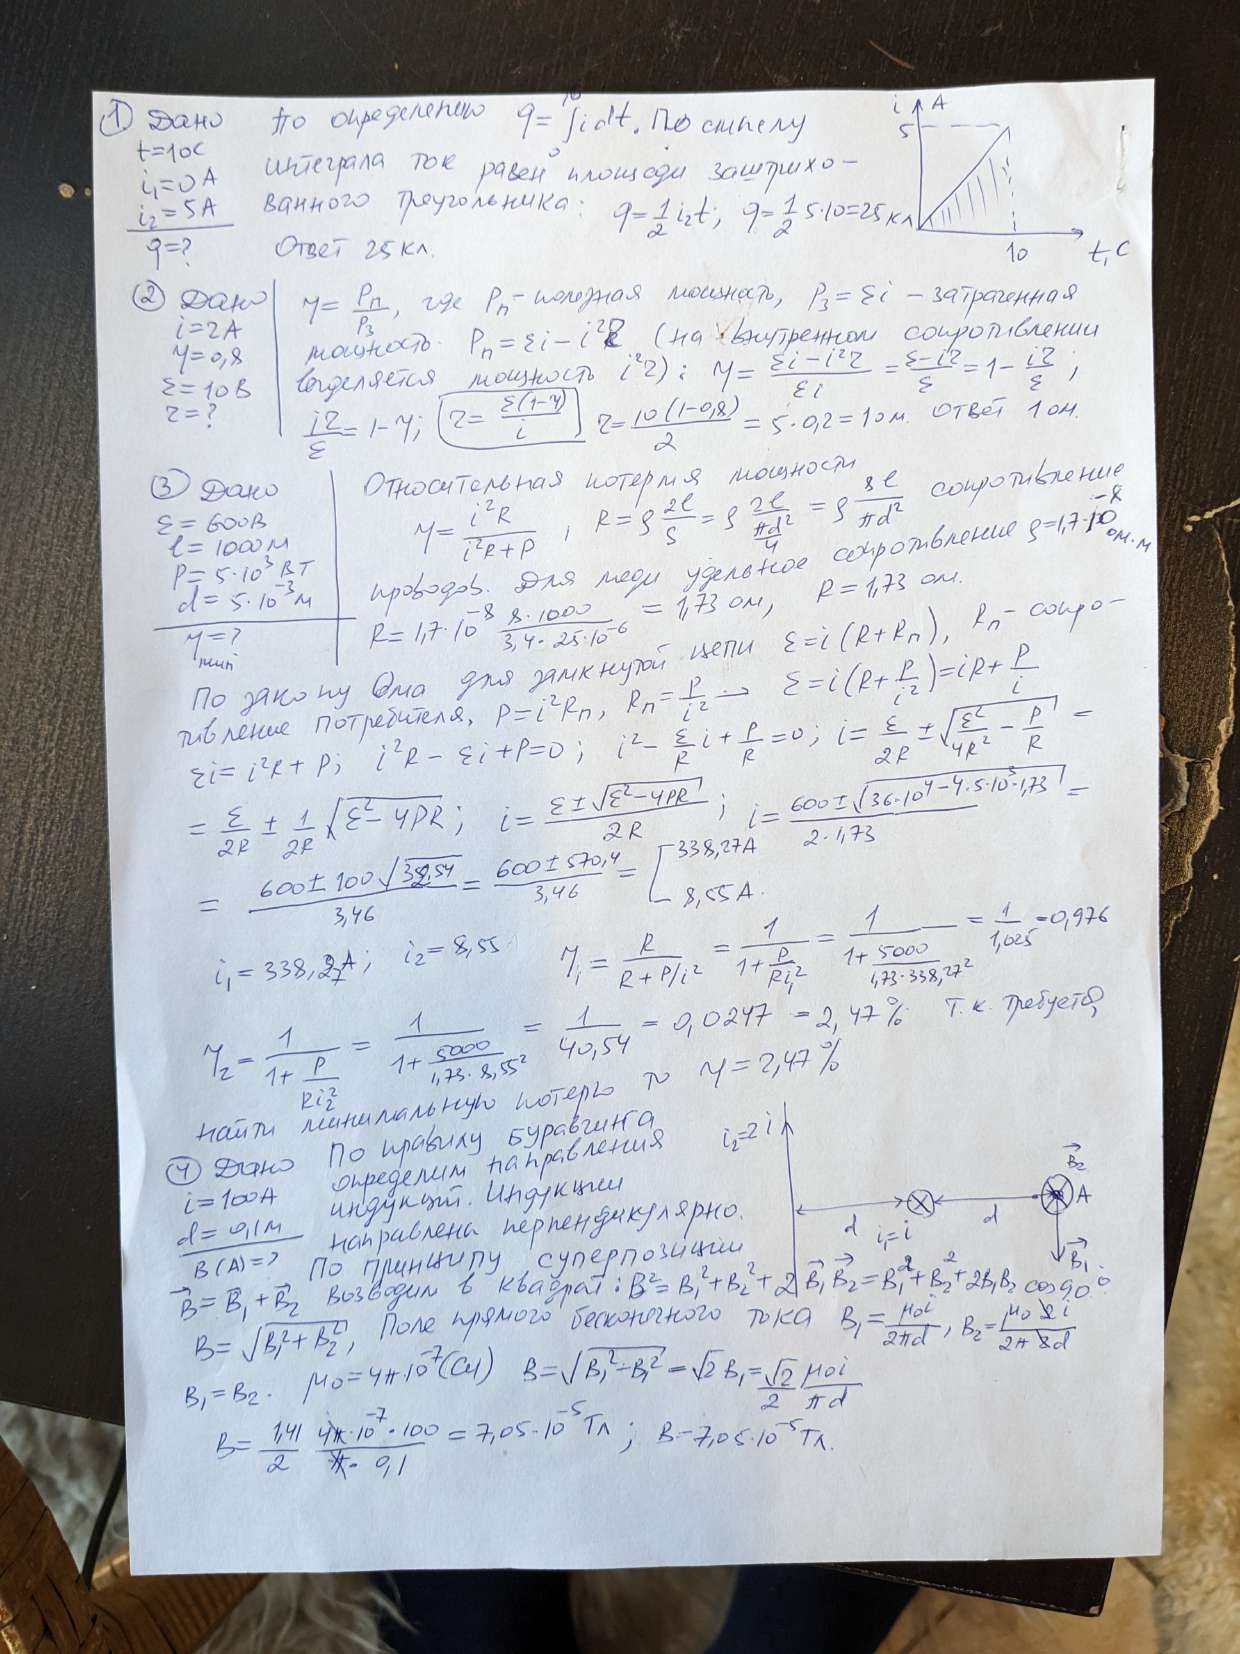 1) Дано По определению q=∫₀¹⁰ i dt. По смыслу
t=10с интеграла ток равен площади заштрихо-
i₁=0А ванного треугольника: q=1/2 i₂t; q=1/2 5·10=25 кл
i₂=5А
q=? Ответ 25 кл.
i А
5
10
t, с
2) Дано η=Pп/Pз, где Pп-полезная мощность, Pз=εi-затраченная
i=2А мощность. Pп=εi-i²r (на внутреннем сопротивлении
η=0,8 выделяется мощность i²r): η=(εi-i²r)/εi=(ε-ir)/ε=1-ir/ε;
ε=10В
r=? ir/ε=1-η; r=ε(1-η)/i r=10(1-0,8)/2=5·0,2=1ом. Ответ 1ом.
3) Дано Относительная потеря мощности
ε=600В η=i²R/(i²R+P), R=ρ 2l/S=ρ 2l/(πd²/4)=ρ 8l/πd² сопротивление
l=1000м
P=5·10³ВТ проводов. Для меди удельное сопротивление ρ=1,7·10⁻⁸ ом·м
d=5·10⁻³м
η min=? R=1,7·10⁻⁸ 8·1000/(3,4·25·10⁻⁶)=1,73 ом, R=1,73 ом.
По закону Ома для замкнутой цепи ε=i(R+Rп), Rп-сопро-
тивление потребителя, P=i²Rп, Rп=P/i² → ε=i(R+P/i²)=iR+P/i
εi=i²R+P; i²R-εi+P=0; i²-ε/R i+P/R=0; i=ε/2R±√(ε²/4R²-P/R)=
=ε/2R±1/2R √(ε²-4PR); i=(ε±√(ε²-4PR))/2R; i=(600±√(36·10⁴-4·5·10³·1,73))/(2·1,73)=
=(600±100√32,54)/3,46=(600±570,4)/3,46=[338,27А
8,55А.
i₁=338,27А; i₂=8,55 η₁=R/(R+P/i²)=1/(1+P/Ri₁²)=1/(1+5000/(1,73·338,27²))=1/1,025=0,976
η₂=1/(1+P/Ri₂²)=1/(1+5000/(1,73·8,55²))=1/40,54=0,0247=2,47% Т.к. требуется
найти минимальную потерю то η=2,47%
4) Дано По правилу буравчика
i=100А определим направления
d=0,1м индукций. Индукции
B(A)=? направлены перпендикулярно.
i₂=2i
d
i₁=i
d
B₂
A
B₁
По принципу суперпозиции
B=B₁+B₂ возводим в квадрат: B²=B₁²+B₂²+2B₁B₂=B₁²+B₂²+2B₁B₂cos90°
B=√(B₁²+B₂²), Поле прямого бесконечного тока B₁=μ₀i/2πd, B₂=μ₀2i/2π2d
B₁=B₂. μ₀=4π·10⁻⁷(Си) B=√(B₁²-B₁²)=√2B₁=√2/2 μ₀i/πd
B=1,41/2 4π·10⁻⁷·100/(π·0,1)=7,05·10⁻⁵Тл; B=7,05·10⁻⁵Тл.